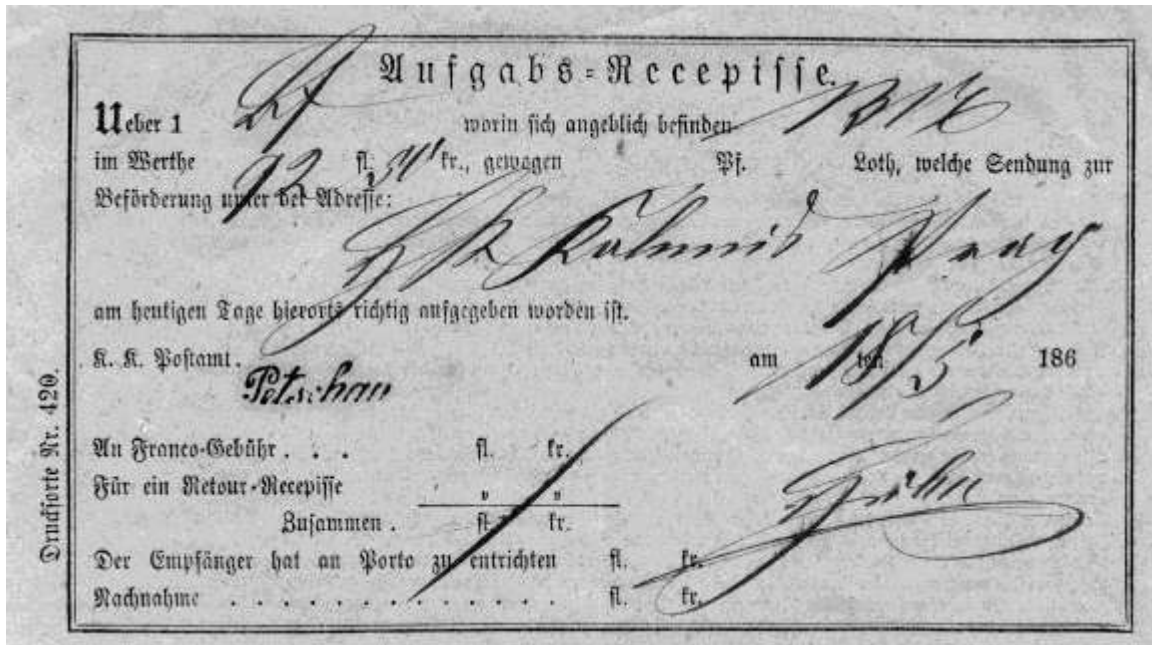 Aufgabs-Recepisse.
Ueber 1 worin sich angeblich befinden
im Werthe 92 fl. kr., gewogen Pf. Loth, welche Sendung zur
Beförderung unter der Adresse:
Prag
am heutigen Tage hierorts richtig aufgegeben worden ist.
K. K. Postamt. Petschau am 18/5 ten 186
An Franco-Gebühr . . . fl. kr.
Für ein Retour-Recepisse " "
Zusammen . fl. kr.
Der Empfänger hat an Porto zu entrichten fl. kr.
Nachnahme . . . . . . . . . . . . . fl. kr.
Drucksorte Nr. 420.